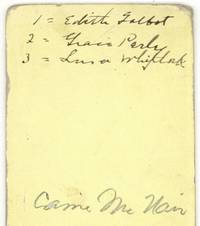 1 = Edith Talbot
2 = Grace Perly
3 = Lura Whiplark
Carrie Mc Nair